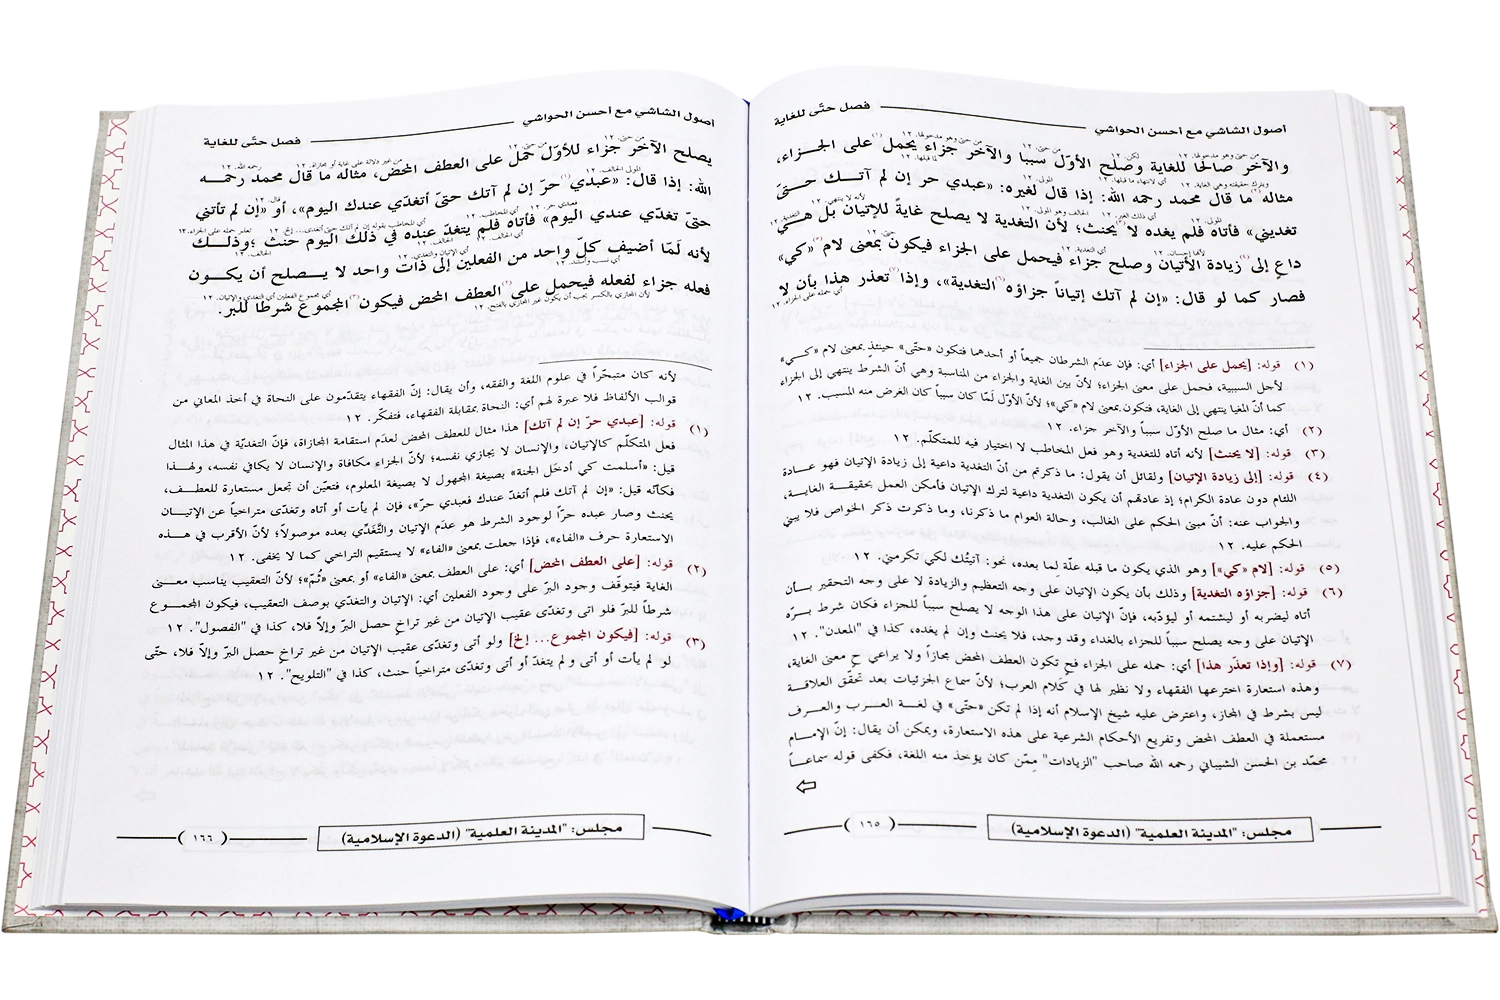 أصول الشاشي مع أحسن الحواشي
فصل حتّى للغاية
والآخر صالحًا للغاية وصلح الأوّل سببا والآخر جزاء يحمل على الجزاء،
مثاله ما قال محمد رحمه الله: إذا قال لغيره: «عبدي حر إن لم آتك حتّى
تغديني» فأتاه فلم يغده لا يحنث؛ لأن التغدية لا يصلح غايةً للإتيان بل هي
داعٍ إلى زيادة الأتيان وصلح جزاء فيحمل على الجزاء فيكون بمعنى لام «كي»
فصار كما لو قال: «إن لم آتك إتياناً جزاؤه التغدية»، وإذا تعذر هذا بأن لا
(١) قوله: [يحمل على الجزاء] أي: فإن عدَم الشرطان جميعاً أو أحدهما فتكون «حتّى» حينئذٍ بمعنى لام «كي»
لأجل السببية، فحمل على معنى الجزاء؛ لأنّ بين الغاية والجزاء من المناسبة وهي أنّ الشرط ينتهي إلى الجزاء
كما أنّ المغيا ينتهي إلى الغاية، فتكون بمعنى لام «كي»؛ لأنّ الأوّل لَمّا كان سبباً كان الغرض منه المسبب. ١٢
(٢) أي: مثال ما صلح الأوّل سبباً والآخر جزاء. ١٢
(٣) قوله: [لا يحنث] لأنه أتاه للتغدية وهو فعل المخاطب لا اختيار فيه للمتكلّم. ١٢
(٤) قوله: [إلى زيادة الإتيان] ولقائل أن يقول: ما ذكرتم من أنّ التغدية داعية إلى زيادة الإتيان فهو عادة
اللئام دون عادة الكرام؛ إذ عادتهم أن يكون التغدية داعية لترك الإتيان فأمكن العمل بحقيقة الغاية،
والجواب عنه: أنّ مبنى الحكم على الغالب، وحالة العوام ما ذكرنا، وما ذكرت ذكر الخواص فلا يبنى
الحكم عليه. ١٢
(٥) قوله: [لام «كي»] وهو الذي يكون ما قبله علّة لِما بعده، نحو: آتيتُك لكي تكرمني. ١٢
(٦) قوله: [جزاؤه التغدية] وذلك بأن يكون الإتيان على وجه التعظيم والزيادة لا على وجه التحقير بأن
أتاه ليضربه أو ليشتمه أو ليؤذيه، فإنّ الإتيان على هذا الوجه لا يصلح سبباً للجزاء فكان شرط برّه
الإتيان على وجه يصلح سبباً للجزاء بالغداء وقد وجد، فلا يحنث وإن لم يغده، كذا في "المعدن". ١٢
(٧) قوله: [وإذا تعذّر هذا] أي: حمله على الجزاء فح تكون العطف المحض مجازاً ولا يراعي ح معنى الغاية،
وهذه استعارة اخترعها الفقهاء ولا نظير لها في كَلام العرب؛ لأنّ سماع الجزئيات بعد تحقّق العلاقة
ليس بشرط في المجاز، واعترض عليه شيخ الإسلام أنه إذا لم تكن «حتّى» في لغة العرب والعرف
مستعملة في العطف المحض وتفريع الأحكام الشرعية على هذه الاستعارة، ويمكن أن يقال: إنّ الإمام
محمّد بن الحسن الشيباني رحمه الله صاحب "الزيادات" مِمّن كان يؤخذ منه اللغة، فكفى قوله سماعاً
مجلس: "المدينة العلمية" (الدعوة الإسلامية)
(١٦٥)
أصول الشاشي مع أحسن الحواشي
فصل حتّى للغاية
يصلح الآخر جزاء للأوّل حُمل على العطف المحض، مثاله ما قال محمد رحمه
الله: إذا قال: «عبدي حرّ إن لم آتك حتىّ أتغدّي عندك اليوم»، أو «إن لم تأتني
حتىّ تغدّي عندي اليوم» فأتاه فلم يتغدّ عنده في ذلك اليوم حنث؛ وذلك
لأنه لَمّا أضيف كلّ واحد من الفعلين إلى ذات واحد لا يصلح أن يكون
فعله جزاء لفعله فيحمل على العطف المحض فيكون المجموع شرطًا للبرّ.
لأنه كان متبحّراً في علوم اللغة والفقه، وأن يقال: إنّ الفقهاء يتقدّمون على النحاة في أخذ المعاني من
قوالب الألفاظ فلا عبرة لهم أي: النحاة بمقابلة الفقهاء، فتفكّر. ١٢
(١) قوله: [عبدي حرّ إن لم آتك] هذا مثال للعطف المحض لعدم استقامة المجازاة، فإنّ التغديّة في هذا المثال
فعل المتكلّم كالإتيان، والإنسان لا يجازي نفسه؛ لأنّ الجزاء مكافاة والإنسان لا يكافي نفسه، ولهذا
قيل: «أسلمت كي أدخَل الجنة» بصيغة المجهول لا بصيغة المعلوم، فتعيّن أن تجعل مستعارة للعطف،
فكأنّه قيل: «إن لم آتك فلم أتغدّ عندك فعبدي حرّ»، فإن لم يأت أو أتاه وتغدّى متراخياً عن الإتيان
يحنث وصار عبده حرّاً لوجود الشرط هو عدَم الإتيان والتَّغَدِّي بعده موصولاً؛ لأنّ الأقرب في هذه
الاستعارة حرف «الفاء»، فإذا جعلت بمعنى «الفاء» لا يستقيم التراخي كما لا يخفى. ١٢
(٢) قوله: [على العطف المحض] أي: على العطف بمعنى «الفاء» أو بمعنى «ثُمّ»؛ لأنّ التعقيب يناسب معنى
الغاية فيتوقّف وجود البرّ على وجود الفعلين أي: الإتيان والتغدّي بوصف التعقيب، فيكون المجموع
شرطاً للبرّ فلو اتى وتغدّى عقيب الإتيان من غير تراخٍ حصل البرّ وإلاّ فلا، كذا في "الفصول". ١٢
(٣) قوله: [فيكون المجموع... إلخ] ولو أتى وتغدّى عقيب الإتيان من غير تراخٍ حصل البرّ وإلاّ فلا، حتّى
لو لم يأت أو أتى و لم يتغدّ أو أتى وتغدّى متراخياً حنث، كذا في "التلويح". ١٢
مجلس: "المدينة العلمية" (الدعوة الإسلامية)
(١٦٦)